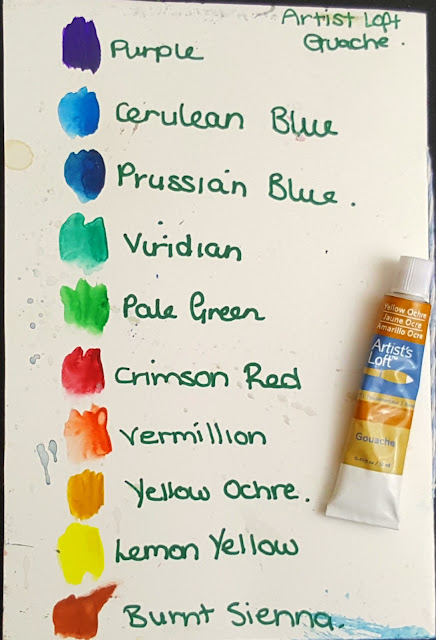 Artist Loft
Guache.
Purple
Cerulean Blue
Prussian Blue.
Viridian
Pale Green
Crimson Red
Vermillion
Yellow Ochre.
Lemon Yellow
Burnt Sienna.
Yellow Ochre
Jaune Ocre
Amarillo Ocre
Artist's
Loft™
Gouache